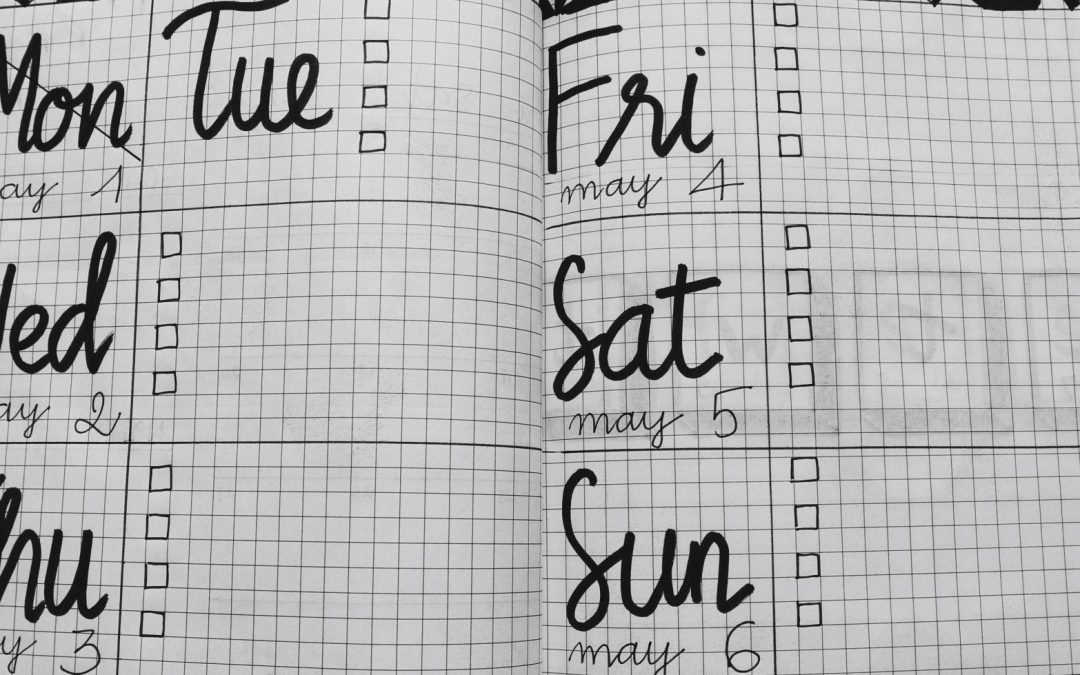 Mon
Tue
ay 1
ed
ay 2
hu
y 3
Fri
may 4
Sat
may 5
Sun
may 6